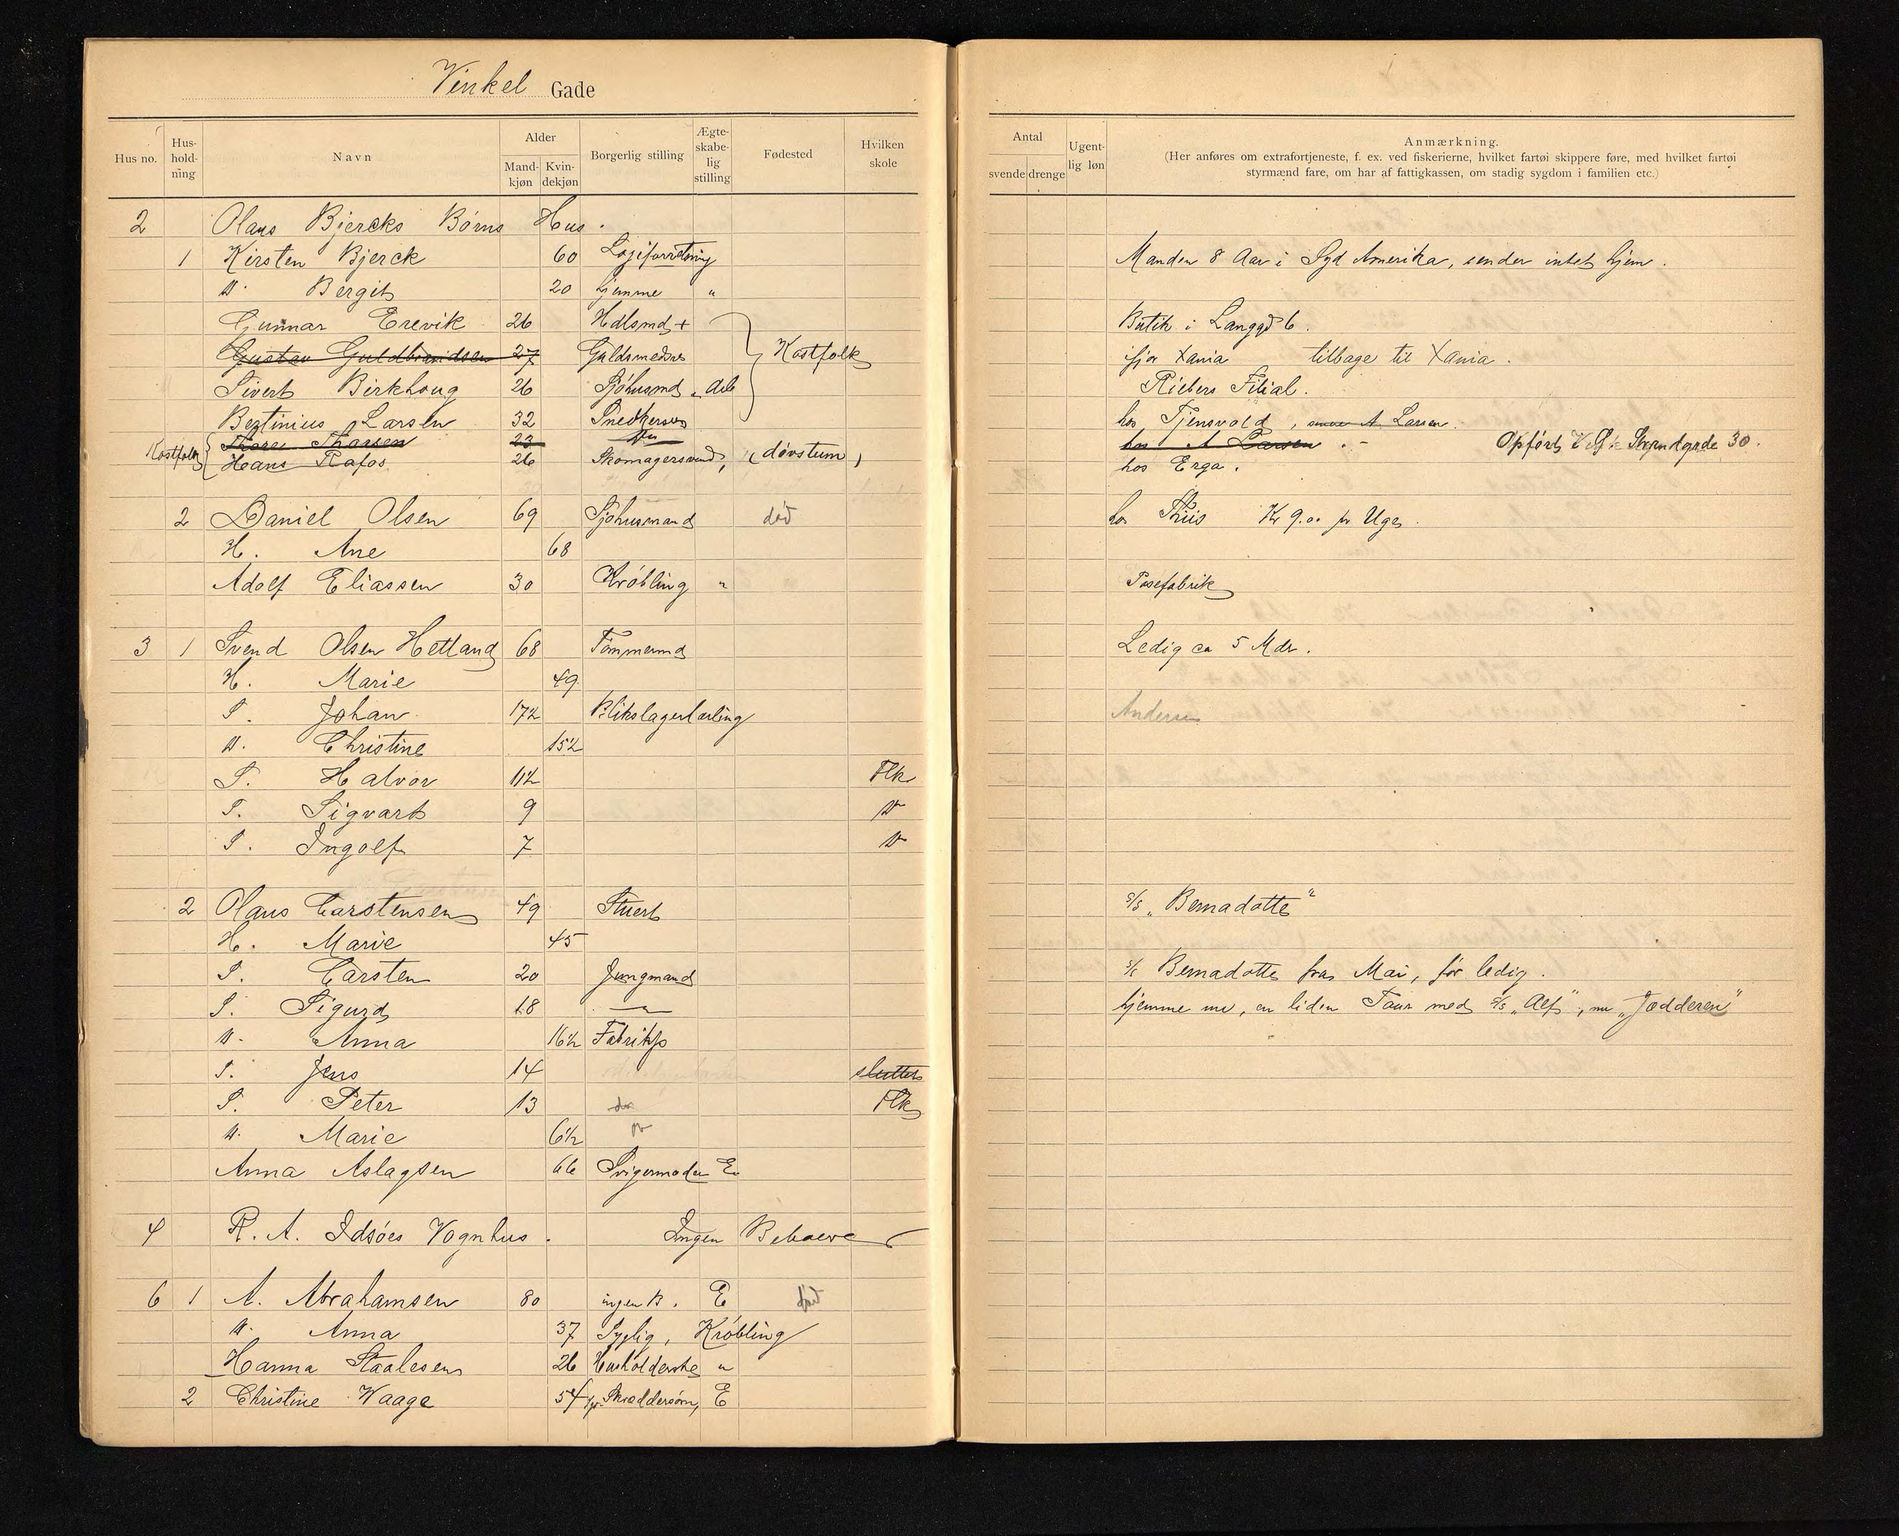 Vinkel Gade
Hus no. Hus-hold-ning Navn Alder Mand-kjøn Kvin-dekjøn Borgerlig stilling Ægte-skabe-lig stilling Fødested Hvilken skole
Antal svende drenge Ugent-lig løn Anmærkning.
(Her anføres om extrafortjeneste, f. ex. ved fiskerierne, hvilket fartøi skippere føre, med hvilket fartøi
styrmænd fare, om har af fattigkassen, om stadig sygdom i familien etc.)
2 Olaus Bjercks Børns Hus.
1 Kirsten Bjerck 60 Logiforretning Manden 8 Aar i Syd Amerika, sender intet hjem.
D. Bergit 20 hjemme "
Gunnar Erevik 26 Hdlsmd + Butik i Langgd 6.
Gustav Guldbrandsen 27 Guldsmedsv Kostfolk ifjor Xania tilbage til Xania.
Sivert Birkhoug 26 Sjøhusmd " Arb Riebers Filial.
Bertinius Larsen 32 Snedkersv hos Tjensvold, A Larsen
Kostfolk Tore Thorsen 23 hos A Larsen Opført V. St. Strandgade 30.
Hans Rafos 26 Skomagersvend, (døvstum) hos Erga.
2 Daniel Olsen 69 Sjøhusmand død hos Thiis Kr 9.00 pr Uge.
H. Ane 68
Adolf Eliassen 30 Krøbling " Posefabrik
3 1 Svend Olsen Hetland 68 Tømmermd Ledig ca 5 Mdr.
H. Marie 49
S. Johan 17½ Blikslagerlærling Andersen
D. Christine 15½
S. Halvor 11½ Flk
S. Sigvart 9 D
S. Ingolf 7 D
2 Olaus Carstensen 49 Stuert S/S "Bernadotte"
H. Marie 45
S. Carsten 20 Jungmand S/S Bernadotte fra Mai, før ledig.
S. Sigurd 18 — hjemme nu, en liden Tour med S/S "Alf", nu "Jædderen"
D. Anna 16½ Fabrikp
S. Jens 14 sluttet
S. Peter 13 do Flk
D. Marie 6½
Anna Aslagsen 66 Svigermoder E
4 R. A. Idsøes Vognhus. Ingen Beboere
6 1 A. Abrahamsen 80 ingen B. E død
D. Anna 37 Syglig, Krøbling
Hanna Staalesen 26 Husholderske "
2 Christine Waage 54 Skræddersøm, E